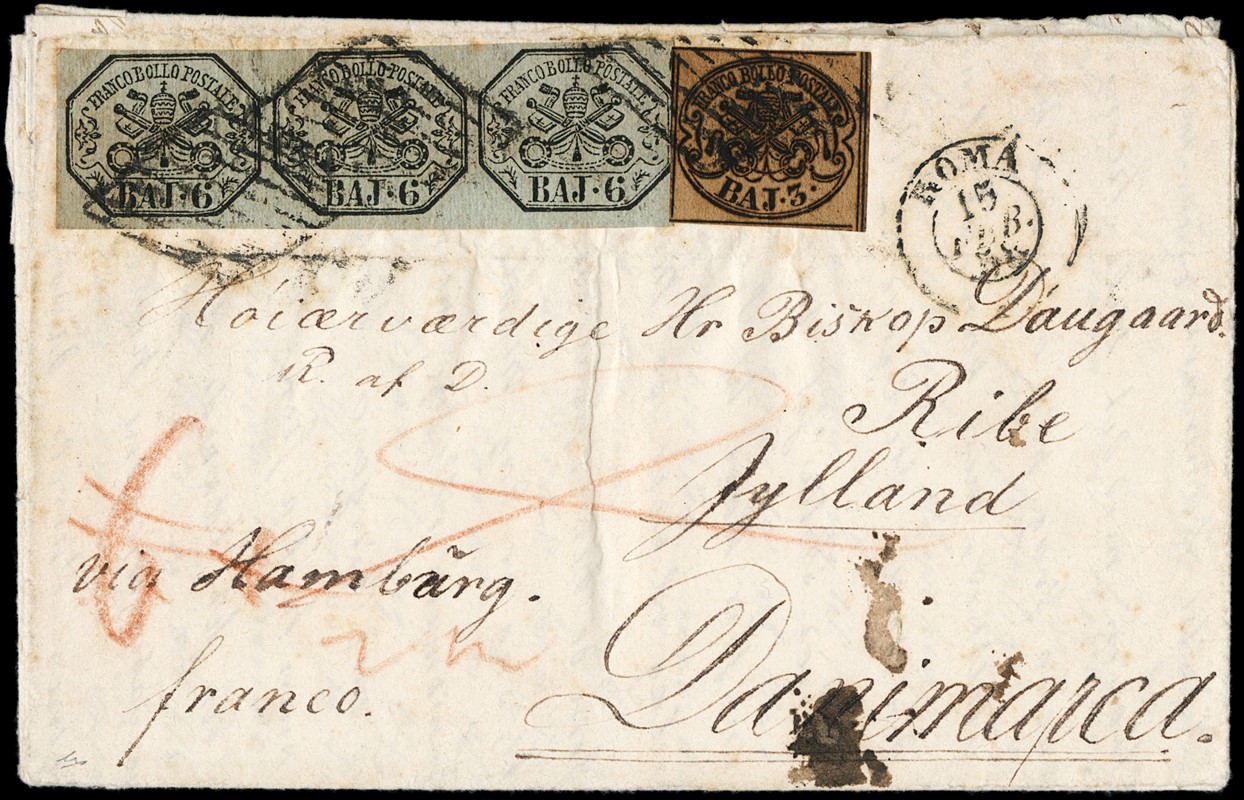 FRANCO BOLLO POSTALE
BAJ·6
FRANCO BOLLO POSTALE
BAJ·6
FRANCO BOLLO POSTALE
BAJ·6
FRANCO BOLLO POSTALE
BAJ·3·
ROMA
15
FEB.
Høiærværdige Hr Biskop Daugaard.
R. af D.
Ribe
Jylland
via Hambŭrg.
franco.
Danimarca.